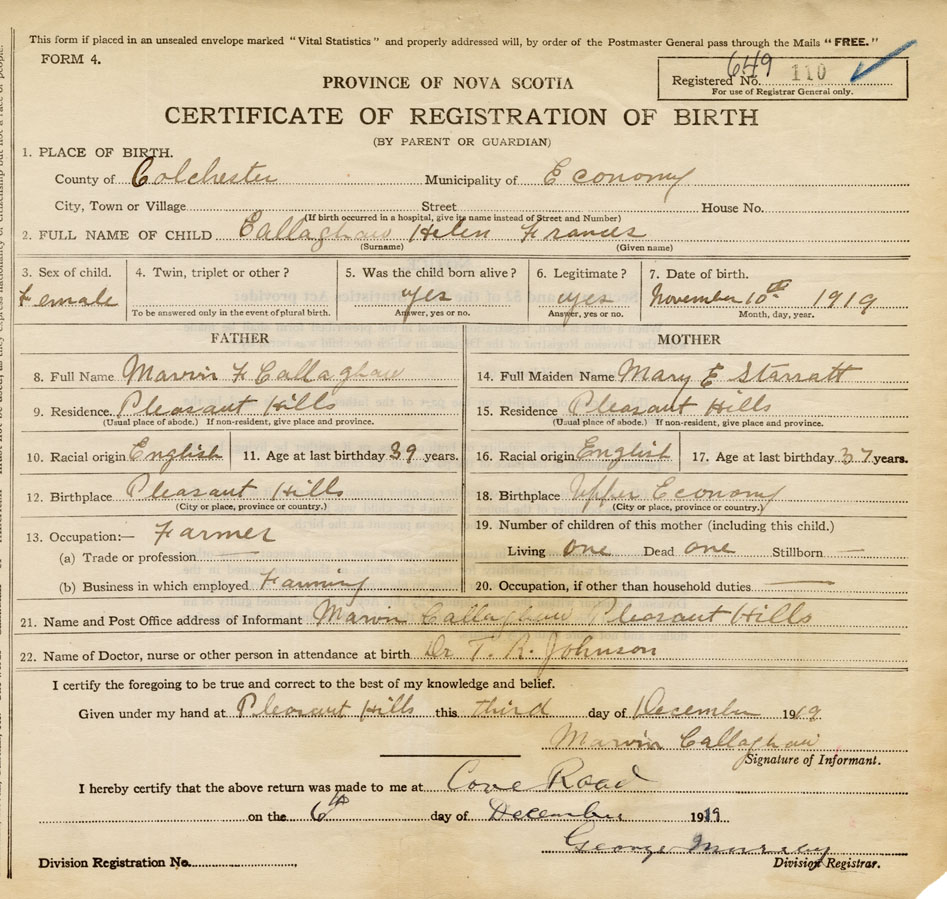 This form if placed in an unsealed envelope marked "Vital Statistics" and properly addressed will, by order of the Postmaster General pass through the Mails "FREE."
FORM 4.
Registered No. 649 110
For use of Registrar General only.
PROVINCE OF NOVA SCOTIA
CERTIFICATE OF REGISTRATION OF BIRTH
(BY PARENT OR GUARDIAN)
1. PLACE OF BIRTH.
County of Colchester Municipality of Economy
City, Town or Village Street House No.
(If birth occurred in a hospital, give its name instead of Street and Number)
2. FULL NAME OF CHILD Callaghan Helen Frances
(Surname) (Given name)
3. Sex of child. 4. Twin, triplet or other? 5. Was the child born alive? 6. Legitimate? 7. Date of birth.
Female yes yes November 10th 1919
To be answered only in the event of plural birth. Answer, yes or no. Answer, yes or no. Month, day, year.
FATHER MOTHER
8. Full Name Marvin F Callaghan 14. Full Maiden Name Mary E Starratt
9. Residence. Pleasant Hills 15. Residence Pleasant Hills
(Usual place of abode.) If non-resident, give place and province. (Usual place of abode.) If non-resident, give place and province.
10. Racial origin English 11. Age at last birthday 39 years. 16. Racial origin English 17. Age at last birthday 37 years.
12. Birthplace Pleasant Hills 18. Birthplace Upper Economy
(City or place, province or country.) (City or place, province or country.)
13. Occupation:— Farmer 19. Number of children of this mother (including this child.)
(a) Trade or profession — Living one Dead one Stillborn —
(b) Business in which employed Farming 20. Occupation, if other than household duties. —
21. Name and Post Office address of Informant Marvin Callaghan Pleasant Hills
22. Name of Doctor, nurse or other person in attendance at birth Dr T. R. Johnson
I certify the foregoing to be true and correct to the best of my knowledge and belief.
Given under my hand at Pleasant Hills this third day of December 1919
Marvin Callaghan
Signature of Informant.
I hereby certify that the above return was made to me at Cove Road
on the 6th day of December 1919
George Murray
Division Registration No. Division Registrar.